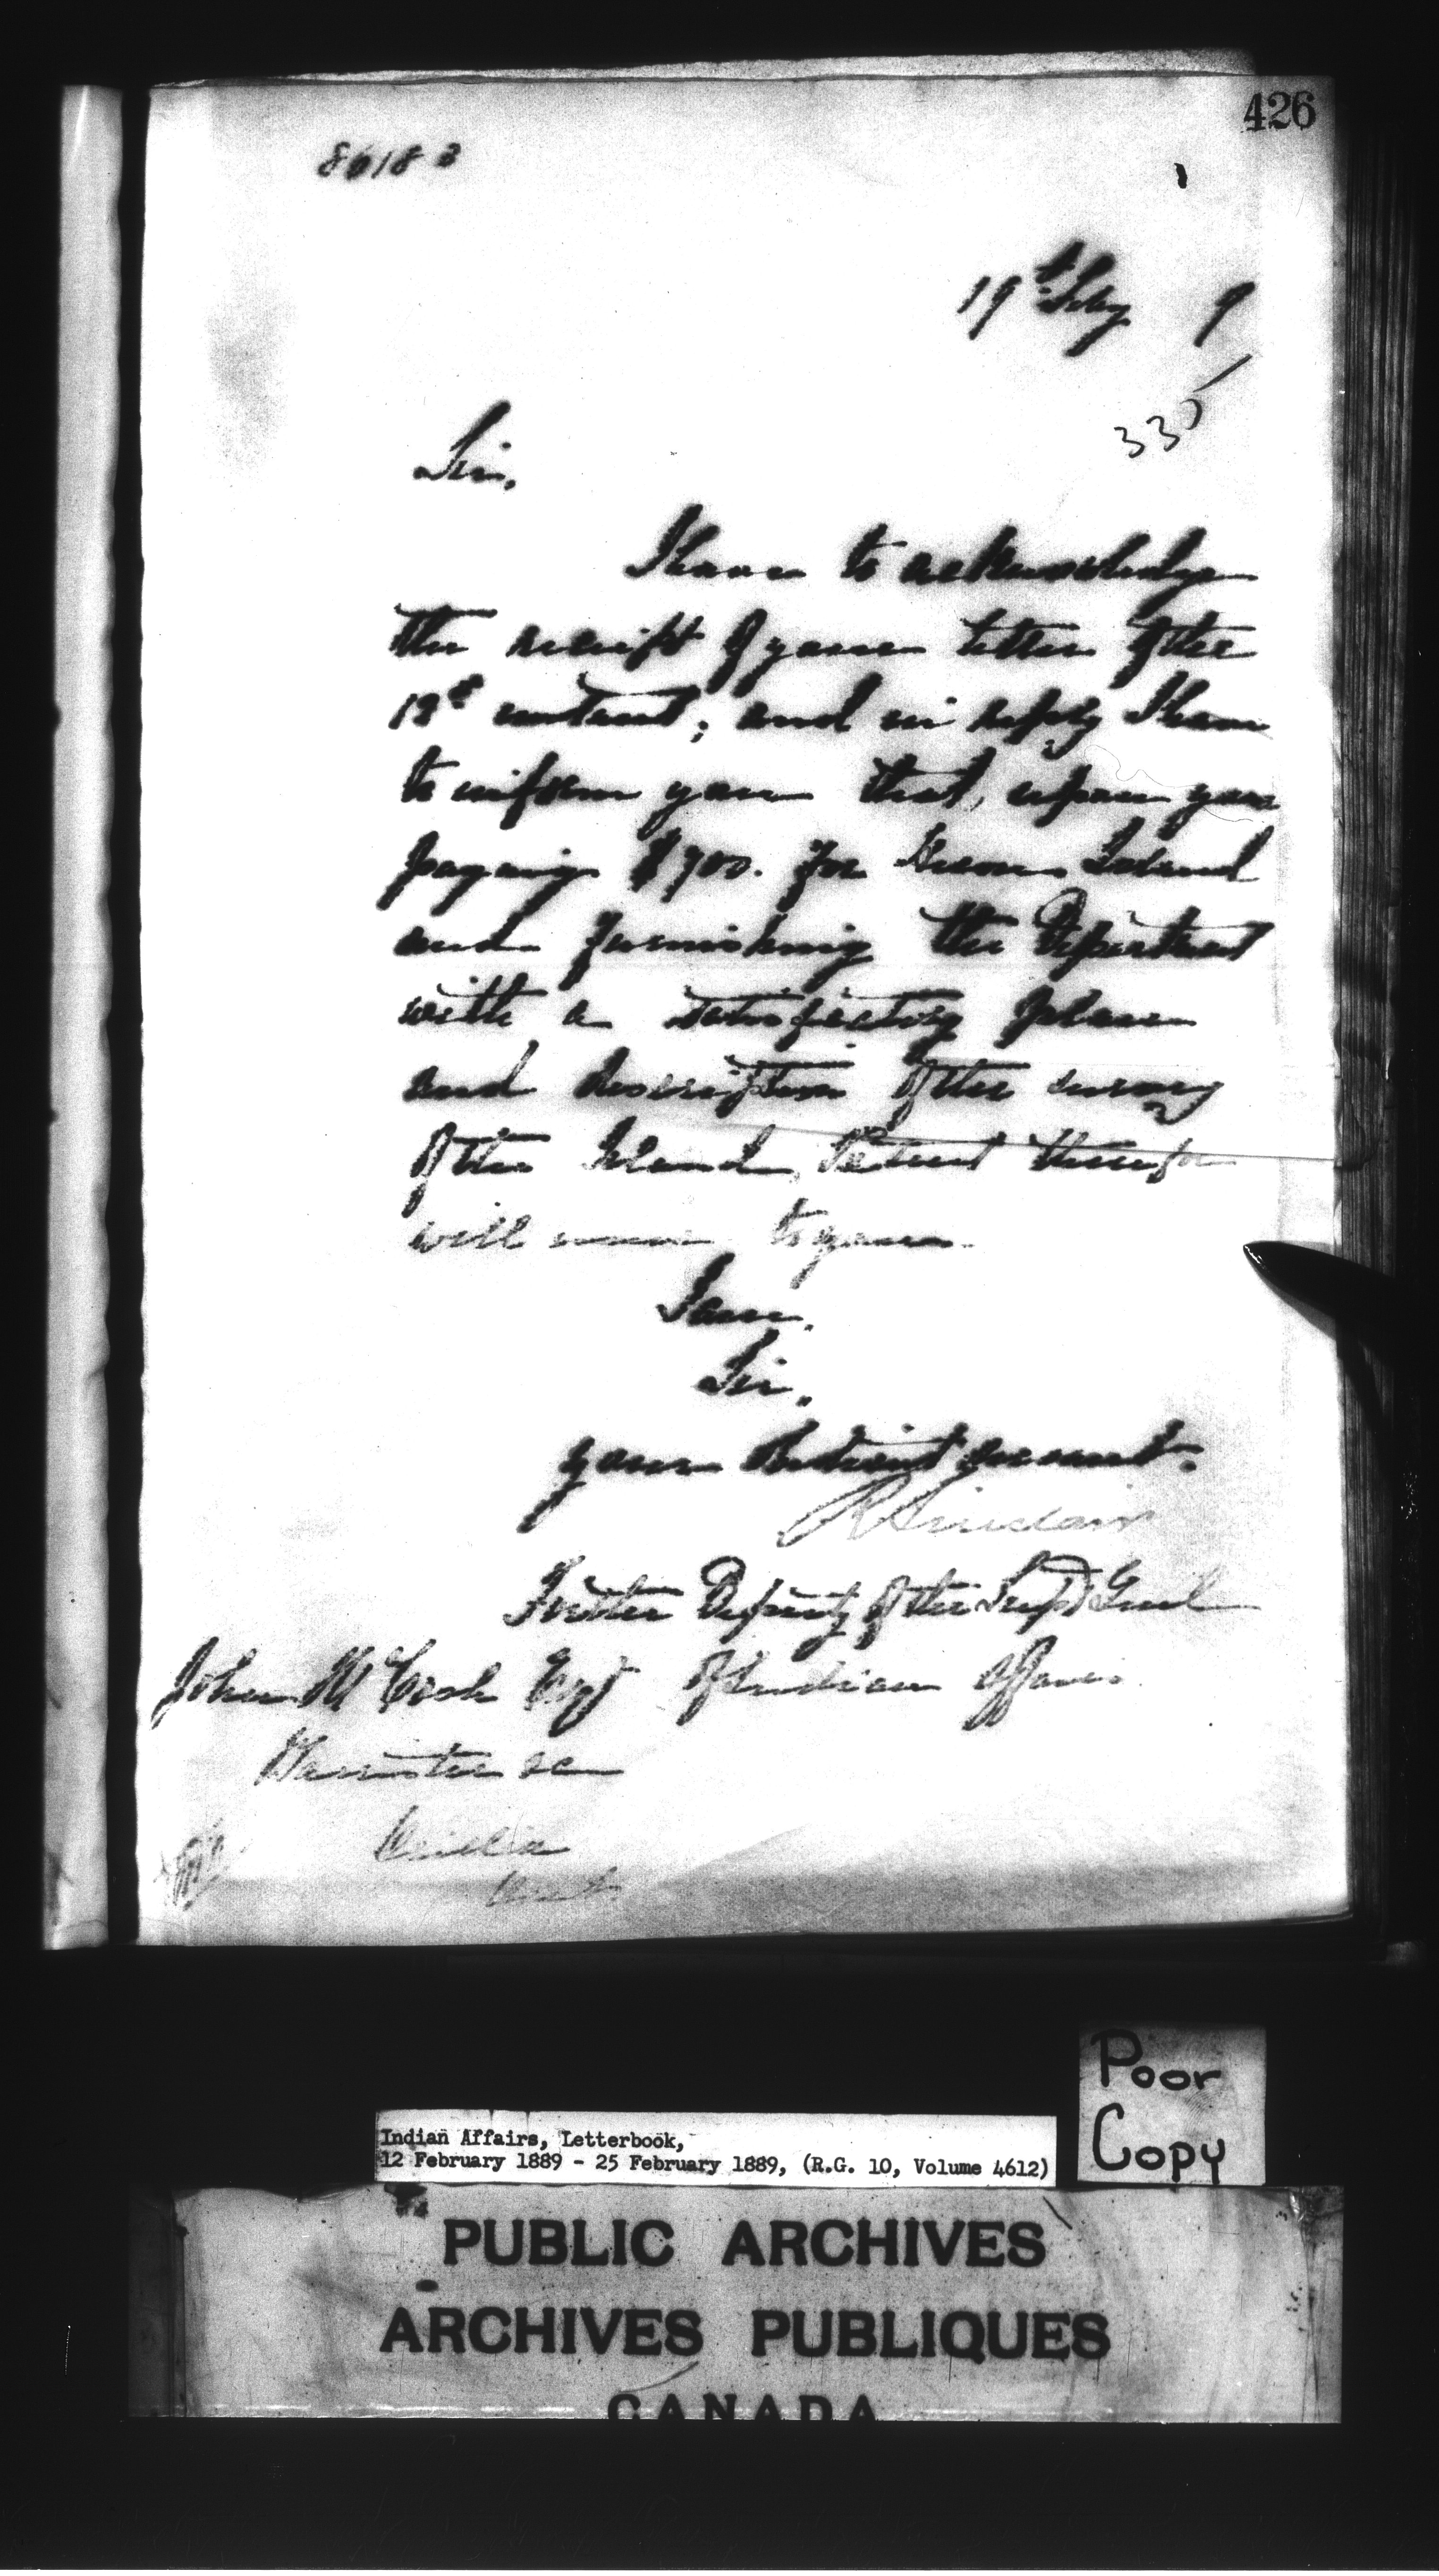 426
86183
19th Feby 9
335
Sir,
I have to acknowledge
the receipt of your letter of the
12th instant; and in reply I have
to inform you that, upon your
paying $700. for Island
and furnishing the Department
with a satisfactory plan
and description of the survey
of the Island, Patent therefor
will issue to you.
I am,
Sir,
Your Obedient servant.
R Sinclair
For the Deputy of the Supt Genl
of Indian Affairs
John McCosh Esqr
Barrister &c
Orillia
Ont
Poor
Copy
Indian Affairs, Letterbook,
12 February 1889 - 25 February 1889, (R.G. 10, Volume 4612)
PUBLIC ARCHIVES
ARCHIVES PUBLIQUES
CANADA